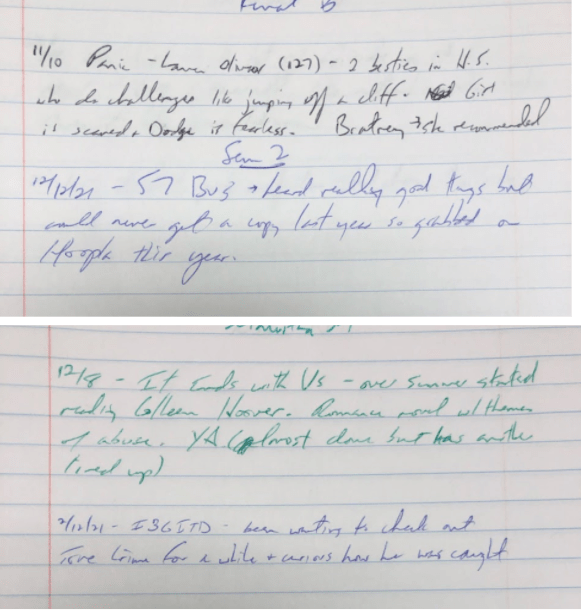 Final B
11/10 Panic - Lauren Oliver (127) - 2 besties in H.S.
who do challenges like jumping off a cliff. Girl
is scared, Dodge is fearless. she recommended
Sem 2
12/12/21 - 57 Bus → heard really good things but
could never get a copy last year so grabbed on
Hoopla this year.
12/8 - It Ends with Us - over summer started
reading Colleen Hoover. Romance novel w/ themes
of abuse. YA (almost done but has another
lined up)
2/12/21 - IBGITD - been waiting to check out
True Crime for a while + curious how he was caught